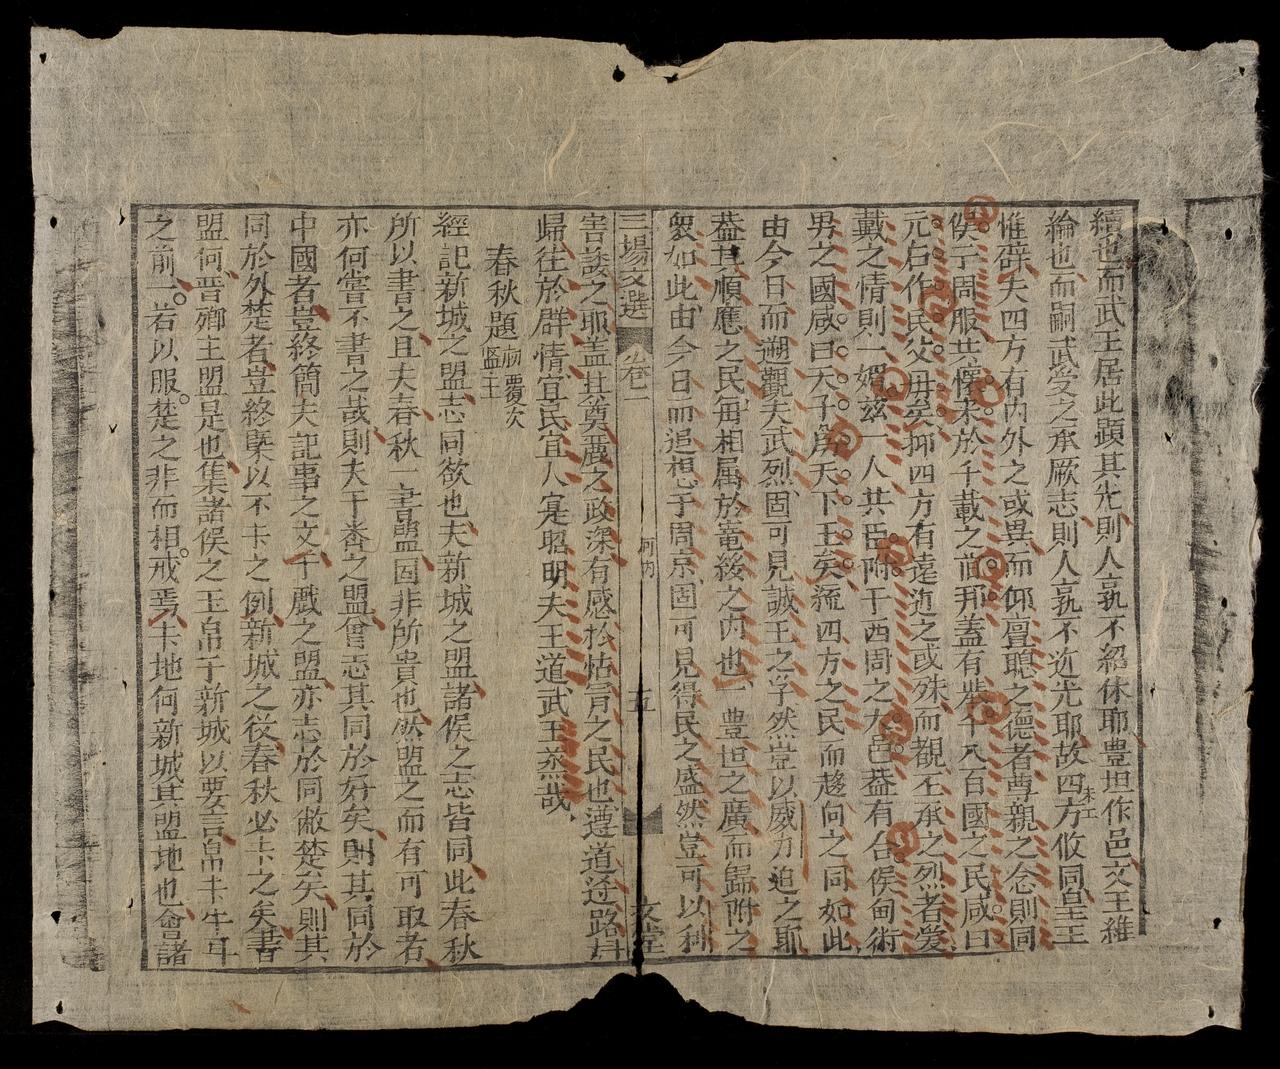 續也而武王居此顕其光則人孰不紹休耶豊坦作邑文王維
綸也而嗣武受之承厥志則人孰不近光耶故四方攸同皇王
惟辟夫四方有内外之或異而仰亶聰之德者尊親之念則同
侯于周服共懷未於千載之前邦盖有柴千八百國之民咸曰
元后作民父母矣抑四方有遠迩之或殊而覩丕承之烈者爱
戴之情則一媚兹一人共臣附于西周之大邑盖有合侯甸衛
男之國咸曰天子爲天下王矣統四方之民而趍向之同如此
由今日而遡觀夫武烈固可見誠王之孚然豈以威力迫之耶
盖其順應之民每相属於寵綏之内也一豊坦之廣而歸附之
衆如此由今日而追想乎周京固可見得民之盛然豈可以利
三場文選 卷一 河内 五 文堂
害誘之耶盖其奠麗之政深有感於怙冐之民也遵道遵路
歸徃於群情宜民宜人寔昭明夫王道武王烝哉
春秋題 覆次 監王
經記新城之盟志同欲也夫新城之盟諸侯之志皆同此春秋
所以書之且夫春秋一書盟固非所貴也然盟之而有可取者
亦何甞不書之哉則夫于畨之盟曾志其同於好矣則其同於
中國者豈終簡夫記事之文于戲之盟亦志於同敝楚矣則其
同於外楚者豈終棄以不卡之例新城之役春秋必卡之矣書
盟何晋鄉主盟是也集諸侯之玉帛于新城以要言帛卡牛耳
之前一若以服楚之非而相戒焉卡地何新城其盟地也會諸